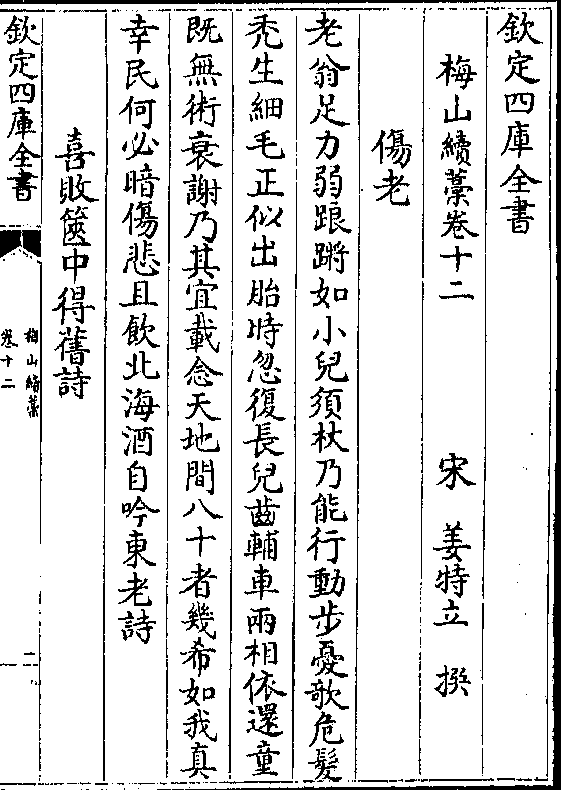 欽定四庫全書
梅山續藁卷十二
宋 姜特立 撰
傷老
老翁足力弱踉蹡如小兒須杖乃能行動步憂欹危髮
禿生細毛正似出胎時忽復長兒齒輔車兩相依還童
既無術衰謝乃其宜載念天地間八十者幾希如我真
幸民何必暗傷悲且飲北海酒自吟東老詩
喜敗篋中得舊詩
欽定四庫全書
梅山續藁
卷十二
一